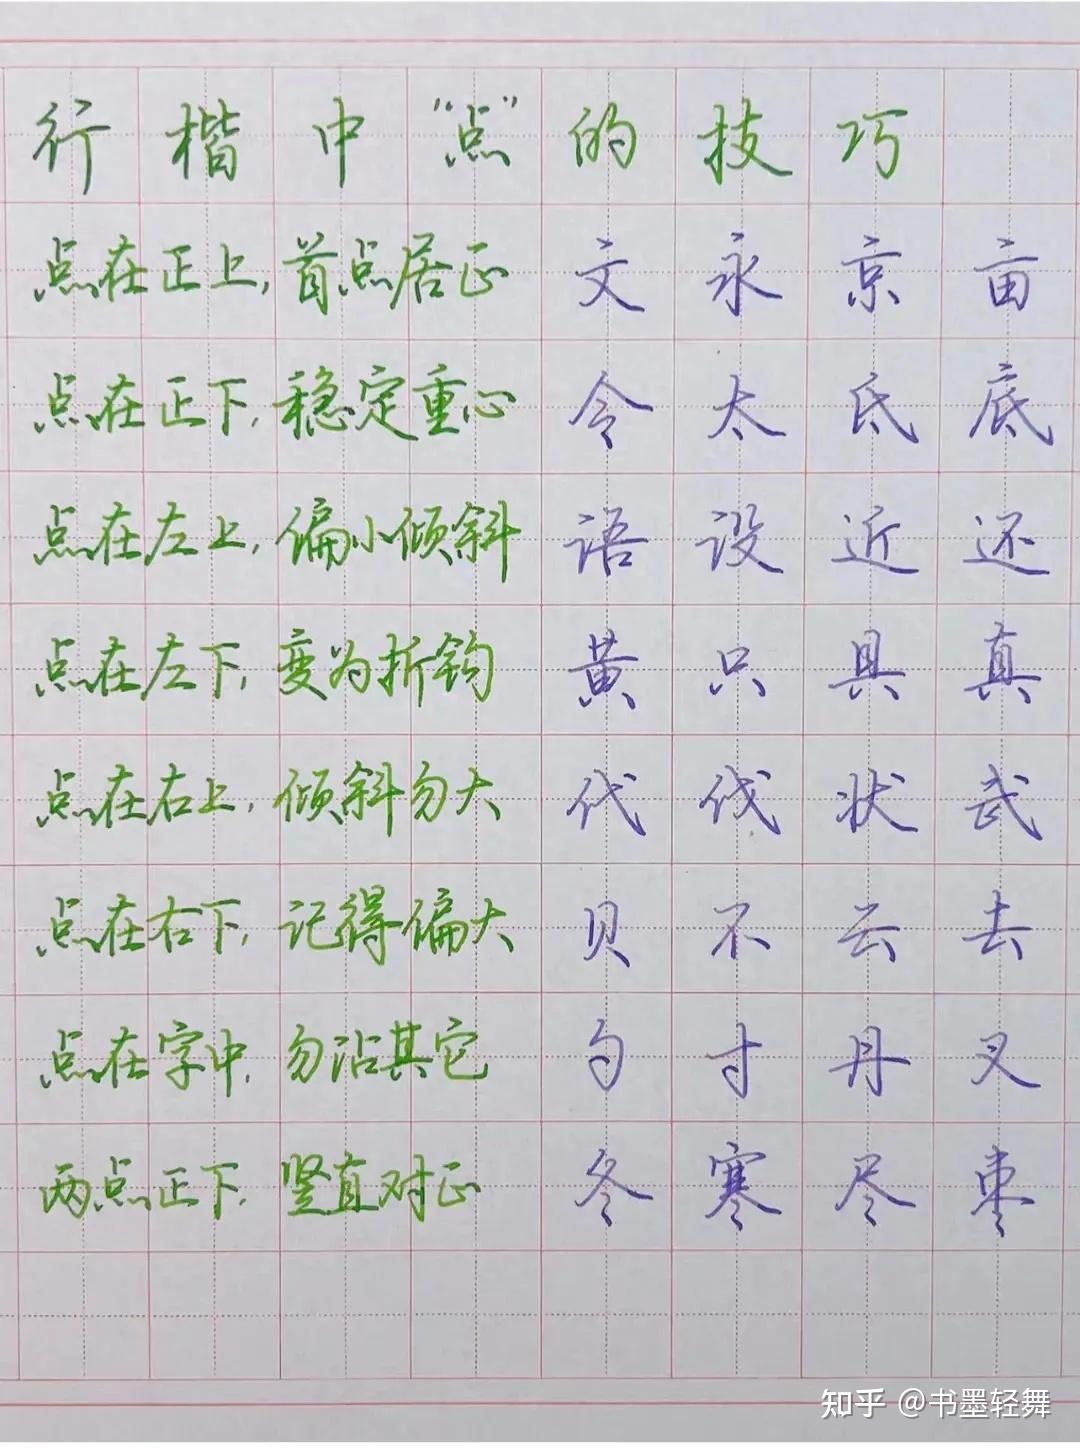 行楷中“点”的技巧
点在正上,首点居正 文永京亩
点在正下,稳定重心 令太氐底
点在左上,偏小倾斜 语设近还
点在左下,变为折钩 黄只具真
点在右上,倾斜勿大 代伐状武
点在右下,记得偏大 贝不云去
点在字中,勿沾其它 勺寸丹叉
两点正下,竖直对正 冬寒尽枣
知乎 @书墨轻舞